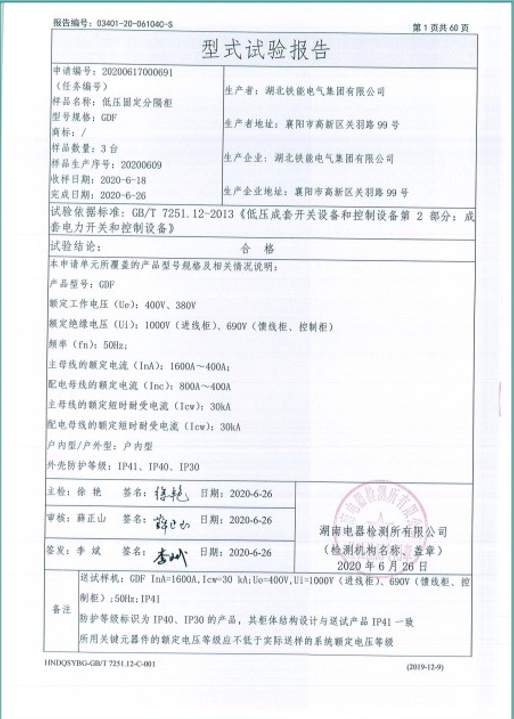 报告编号：03401-20-06104C-S
第 1 页共 60 页
型式试验报告
申请编号：20200617000691
（任务编号）
样品名称：低压固定分隔柜
型号规格：GDF
商标：/
样品数量：3 台
样品生产序号：20200609
收样日期：2020-6-18
完成日期：2020-6-26
生产者：湖北铁能电气集团有限公司
生产者地址：襄阳市高新区关羽路 99 号
生产企业：湖北铁能电气集团有限公司
生产企业地址：襄阳市高新区关羽路 99 号
试验依据标准：GB/T 7251.12-2013《低压成套开关设备和控制设备第 2 部分：成
套电力开关和控制设备》
试验结论： 合 格
本申请单元所覆盖的产品型号规格及相关情况说明：
产品型号：GDF
额定工作电压（Ue）：400V、380V
额定绝缘电压（Ui）：1000V（进线柜）、690V（馈线柜、控制柜）
频率（fn）：50Hz；
主母线的额定电流（InA）：1600A～400A；
配电母线的额定电流（Inc）：800A～400A
主母线的额定短时耐受电流（Icw）：30kA
配电母线的额定短时耐受电流（Icw）：30kA
户内型/户外型：户内型
外壳防护等级：IP41、IP40、IP30
主检：徐 艳 签名：徐艳 日期：2020-6-26
审核：薛正山 签名：薛正山 日期：2020-6-26
签发：李 斌 签名：李斌 日期：2020-6-26
湖南电器检测所有限公司
（检测机构名称、盖章）
2020 年 6 月 26 日
备注
送试样机：GDF InA=1600A,Icw=30 kA;Ue=400V,Ui=1000V（进线柜）、690V（馈线柜、控
制柜）;50Hz;IP41
防护等级标识为 IP40、IP30 的产品，其柜体结构设计与送试产品 IP41 一致
所用关键元器件的额定电压等级应不低于实际送样的系统额定电压等级
HNDQSYBG-GB/T 7251.12-C-001
(2019-12-9)